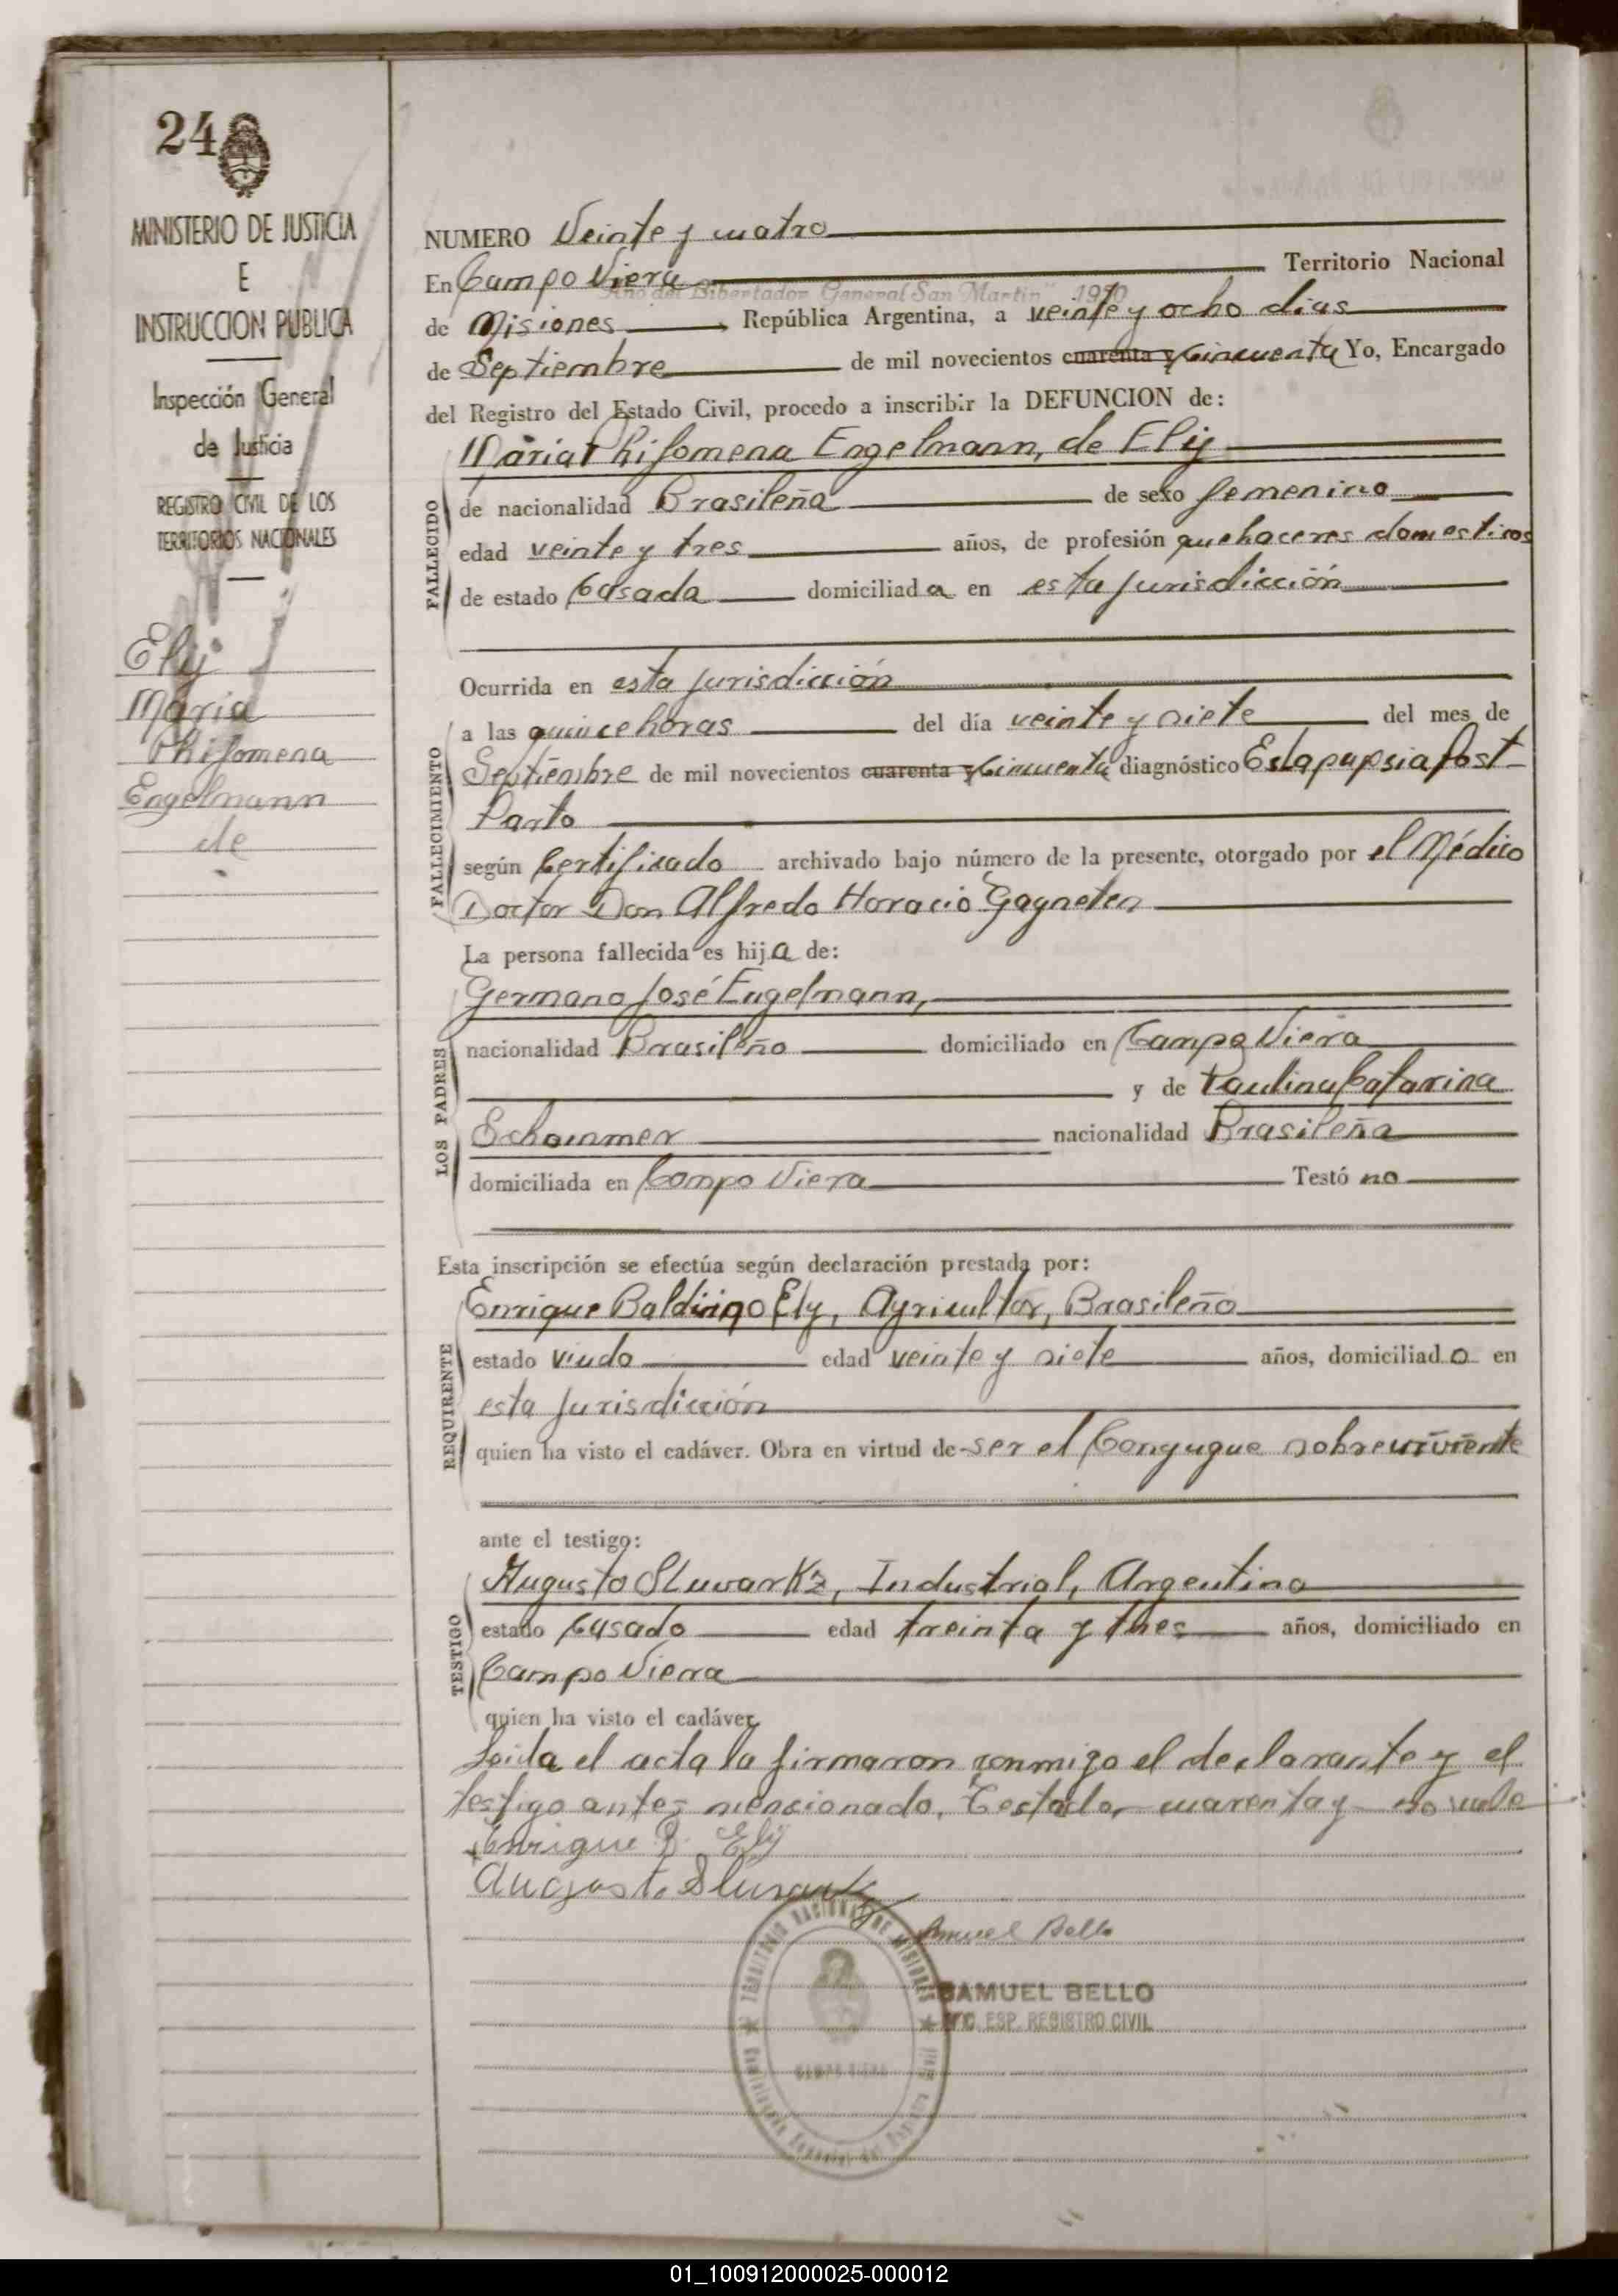 24
MINISTERIO DE JUSTICIA
E
INSTRUCCION PUBLICA
Inspección General
de Justicia
REGISTRO CIVIL DE LOS
TERRITORIOS NACIONALES
Ely
Maria
Philomena
Engelmann
de
NUMERO Veinte y cuatro
En Campo Viera Territorio Nacional
"Año del Libertador General San Martin" 1950
de Misiones República Argentina, a veinte y ocho dias
de Septiembre de mil novecientos cuarenta y cincuenta Yo, Encargado
del Registro del Estado Civil, procedo a inscribir la DEFUNCION de:
Maria Philomena Engelmann, de Ely
FALLECIDO
de nacionalidad Brasileña de sexo femenino
edad veinte y tres años, de profesión quehaceres domesticos
de estado Casada domiciliada en esta jurisdicción
Ocurrida en esta jurisdicción
FALLECIMIENTO
a las quince horas del día veinte y siete del mes de
Septiembre de mil novecientos cuarenta y cincuenta diagnóstico post-
Parto
según Certificado archivado bajo número de la presente, otorgado por el Médico
Doctor Don Alfredo Horacio Gagneten
La persona fallecida es hija de:
LOS PADRES
Germano José Engelmann,
nacionalidad Brasileño domiciliado en Campo Viera
y de Paulina Catarina
nacionalidad Brasileña
domiciliada en Campo Viera Testó no
Esta inscripción se efectúa según declaración prestada por:
REQUIRENTE
Enrique Baldinno Ely, Agricultor, Brasileño
estado viudo edad veinte y siete años, domiciliado en
esta jurisdicción
quien ha visto el cadáver. Obra en virtud de ser el Conyugue sobreviviente
ante el testigo:
TESTIGO
Augusto Sluvarkz, Industrial, Argentino
estado Casado edad treinta y tres años, domiciliado en
Campo Viera
quien ha visto el cadáver.
Leida el acta la firmaron conmigo el declarante y el
testigo antes mencionado. Testado, cuarenta y no vale
Enrique B. Ely
Augusto Sluvarkz
Samuel Bello
TERRITORIO NACIONAL DE MISIONES
CAMPO VIERA
SAMUEL BELLO
ESP. REGISTRO CIVIL
01_100912000025-000012